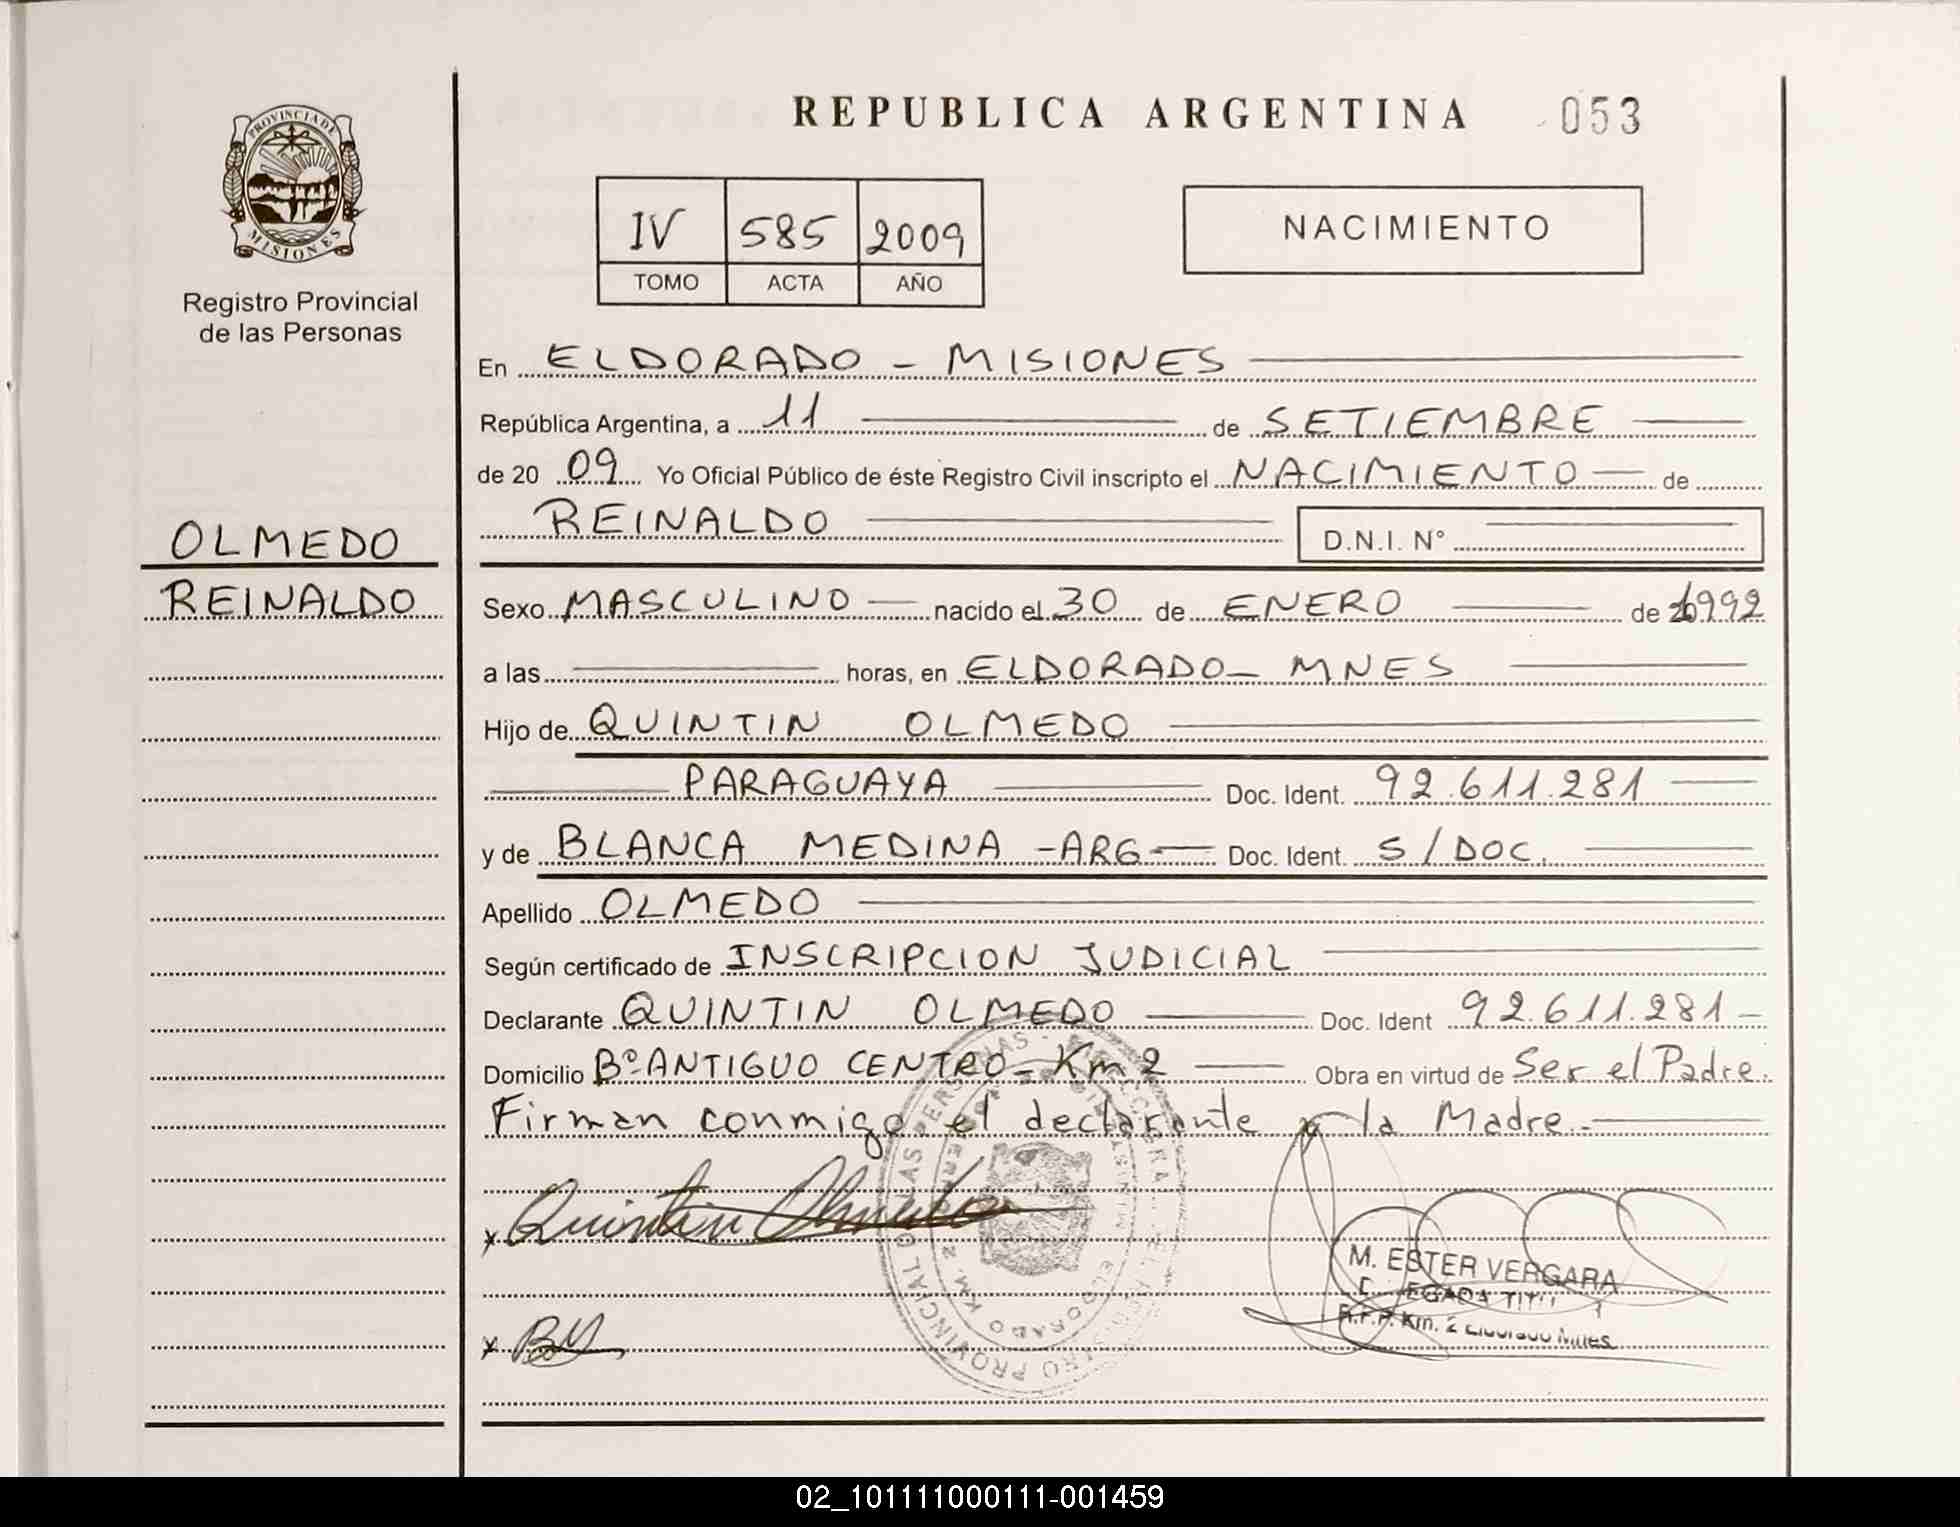 REPUBLICA ARGENTINA 053
PROVINCIA DE
MISIONES
Registro Provincial
de las Personas
IV 585 2009
TOMO ACTA AÑO
NACIMIENTO
OLMEDO
REINALDO
En ELDORADO - MISIONES
República Argentina, a 11 de SETIEMBRE
de 20 09 Yo Oficial Público de éste Registro Civil inscripto el NACIMIENTO de
REINALDO D.N.I. N°
Sexo MASCULINO nacido el 30 de ENERO de 1992
a las horas, en ELDORADO - MNES
Hijo de QUINTIN OLMEDO
PARAGUAYA Doc. Ident. 92.611.281
y de BLANCA MEDINA - ARG - Doc. Ident. S/DOC.
Apellido OLMEDO
Según certificado de INSCRIPCION JUDICIAL
Declarante QUINTIN OLMEDO Doc. Ident 92.611.281 -
Domicilio Bº ANTIGUO CENTRO - Km 2 Obra en virtud de Ser el Padre.
Firman conmigo el declarante y la Madre.-
x Quintin Olmedo
M. ESTER VERGARA
R.P.P. Km. 2
x BM
ELDORADO KM. 2
02_101111000111-001459